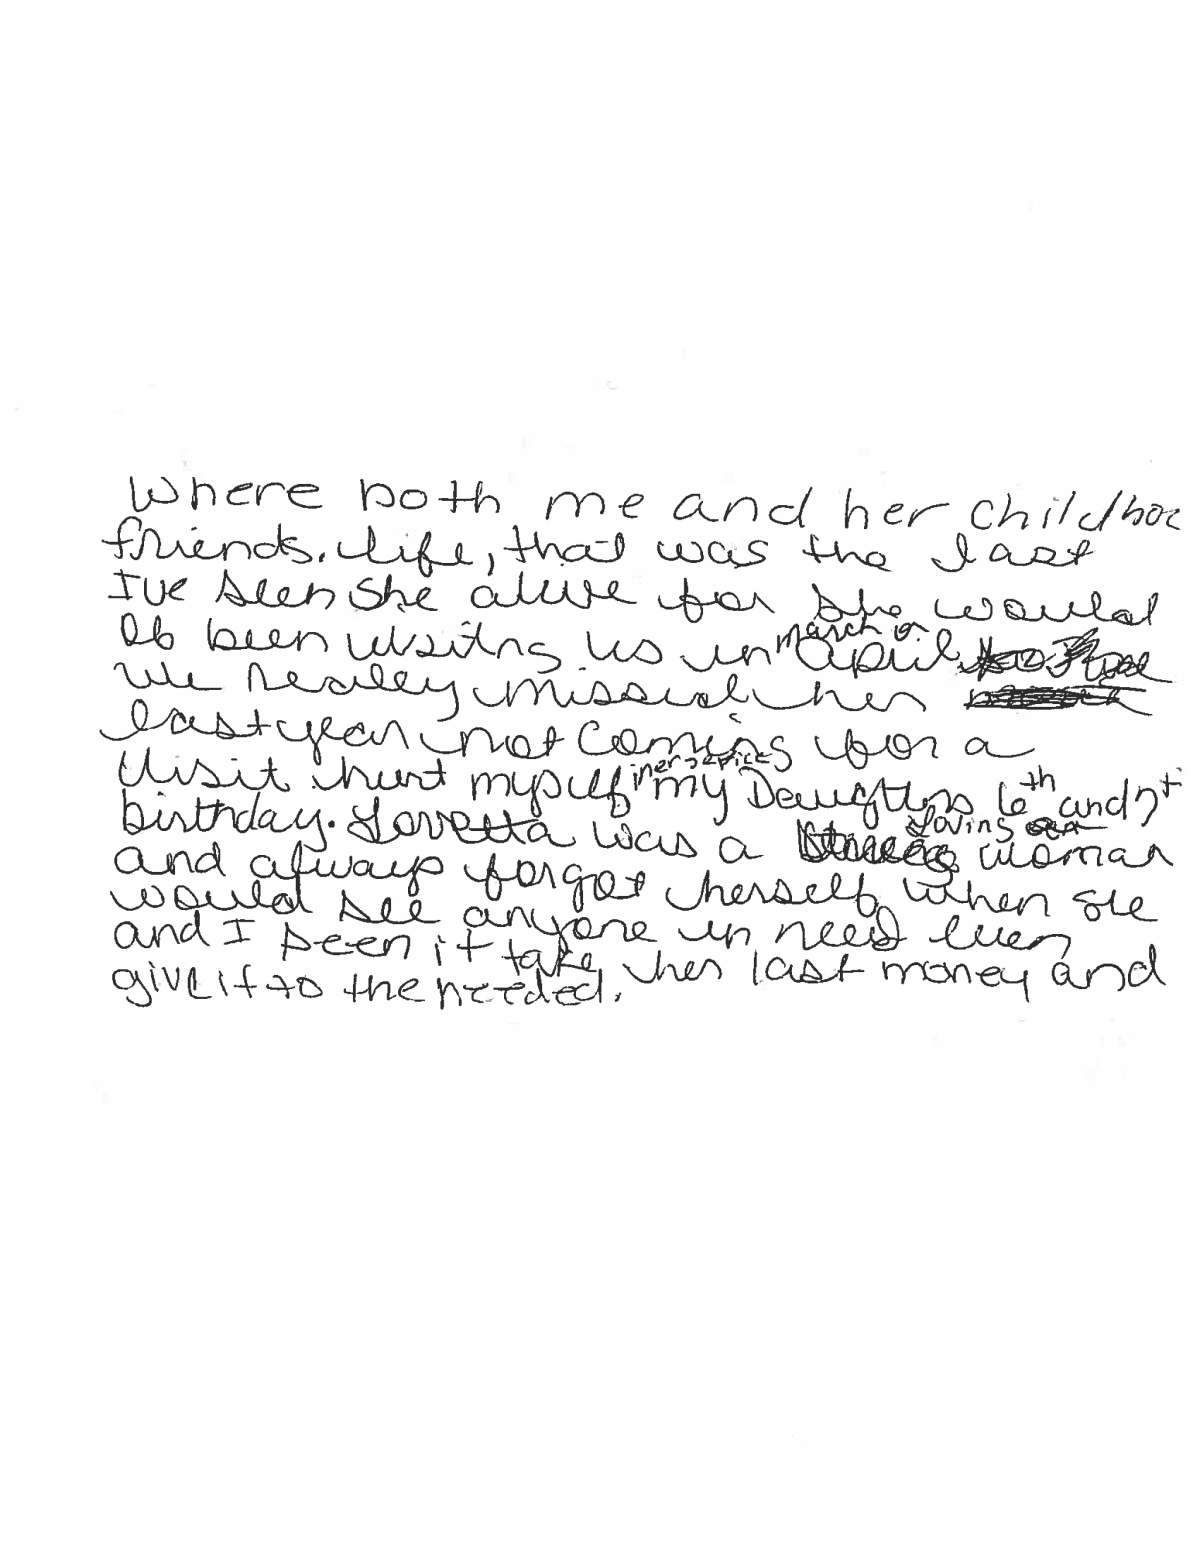 Where both me and her childhoo
friends. life, that was the last
I've seen she alive for she would
of been visitng us in march or April
We really missed her
last year not coming for a
visit hurt myself in er service my Daughters 6th and 7t
birthday. Lovetta was a loving woman
and always forgot herself when she
would see anyone in need even
and I seen it take her last money and
give it to the needed.